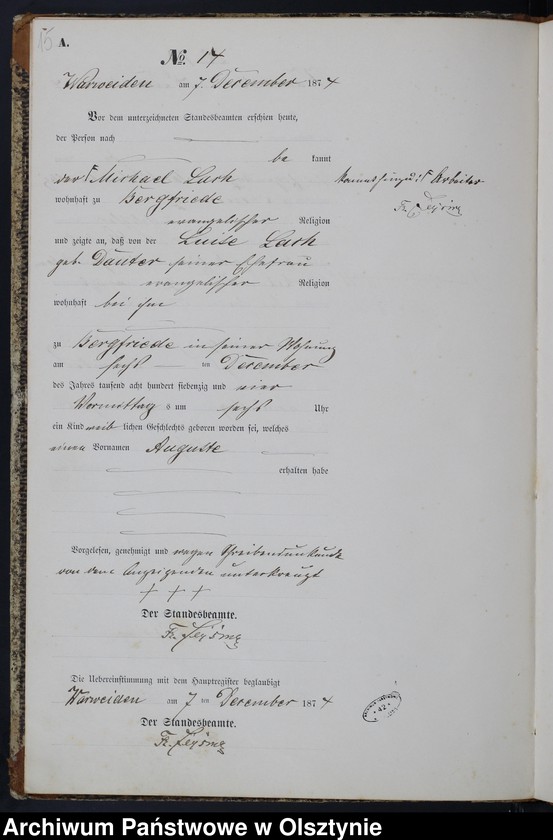 15
A.
No. 14
Warweiden am 7. December 1874
Vor dem unterzeichneten Standesbeamten erschien heute,
der Person nach
be kannt
der Michael Lach Arbeiter
wohnhaft zu Bergfriede
evangelischer Religion
und zeigte an, daß von der Luise Lach
geb. Dauter seiner Ehefrau
evangelischer Religion
wohnhaft bei ihm
zu Bergfriede in seiner Wohnung
am sechs ten December
des Jahres tausend acht hundert siebenzig und vier
Vormittag s um sechs Uhr
ein Kind weib lichen Geschlechts geboren worden sei, welches
einen Vornamen Auguste
erhalten habe
Vorgelesen, genehmigt und wegen Schreibensunkunde
von dem Anzeigenden unterkreuzt
+ + +
Der Standesbeamte.
Die Uebereinstimmung mit dem Hauptregister beglaubigt
Warweiden am 7 ten December 1874
Der Standesbeamte.
42
Archiwum Państwowe w Olsztynie